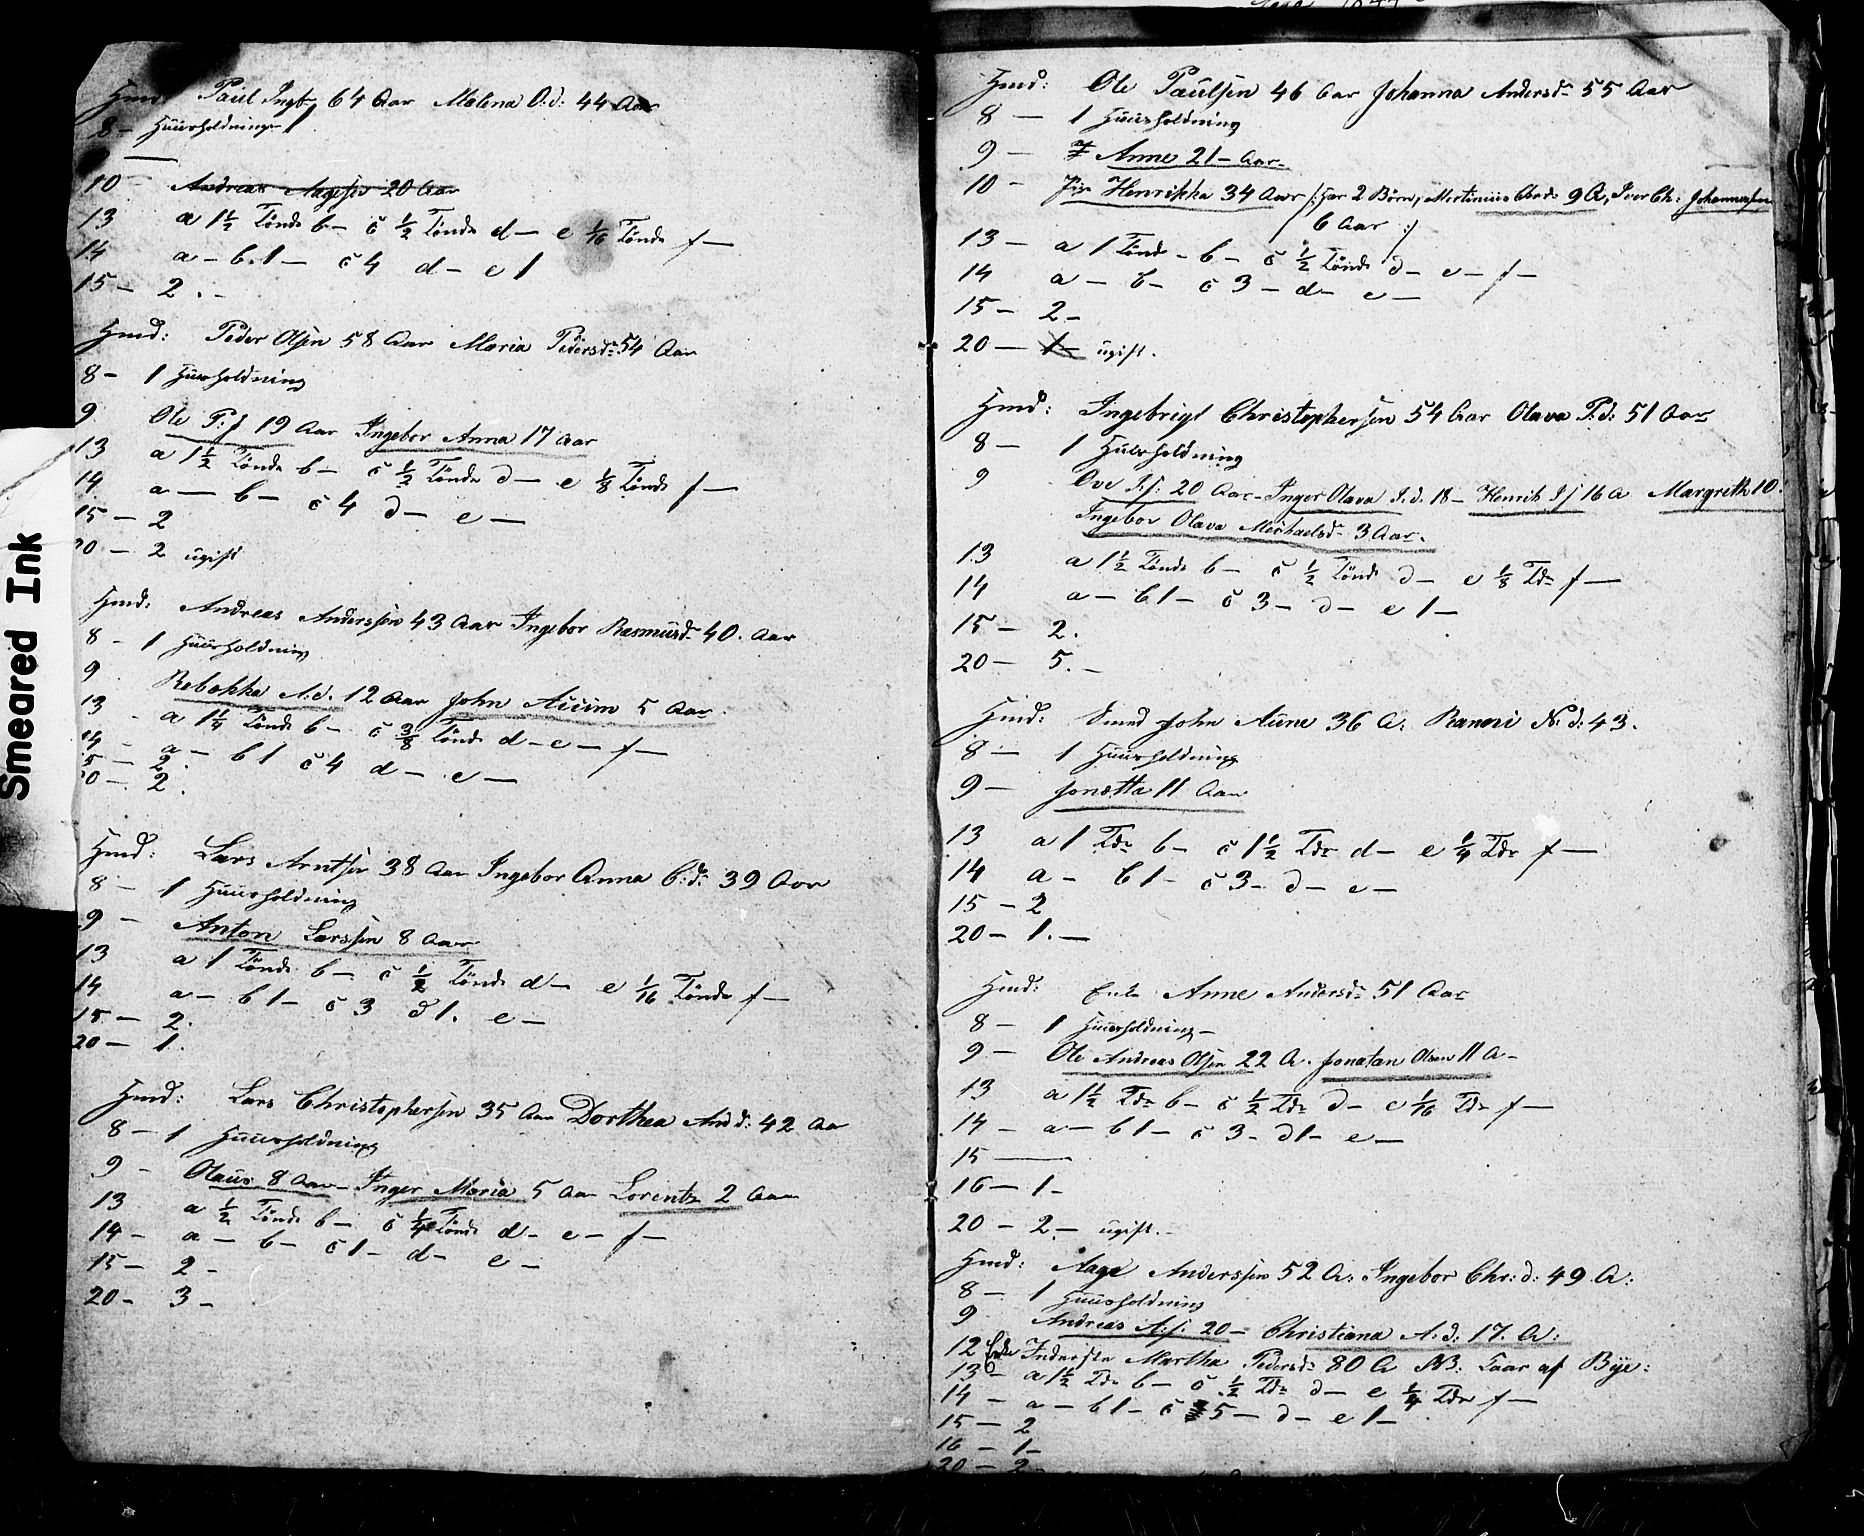 Hmd: Paul Ingb 64 Aar Malena O.d: 44 Aar
8 - Huusholdning 1
10 - Andreas Aagesen 20 Aar
13 a 1¼ Tønde b - c ½ Tønde d - e 1/16 Tønde f -
14 a - b. 1 - c 4 d - e 1
15 - 2 . -
Hmd: Peder Olsen 58 Aar Maria Pedersd: 54 Aar
8 - 1 Huusholdning
9 Ole P: s 19 Aar Ingebor Anna 17 Aar
13 a 1½ Tønde b - c ½ Tønde d - e ⅛ Tønde f -
14 a - b - c 4 d - e -
15 - 2
20 - 2 ugift
Hmd: Andreas Anderssen 43 Aar Ingebor Rasmusd 40. Aar
8 - 1 Huusholdning
9 Rebekka A: d. 12 Aar John 5 Aar.
13 - a 1¼ Tønde b - c ⅜ Tønde d - e - f -
14 - a - b 1 c 4 d - e -
5 - 2.
20 - 2.
Hmd: Lars Arntsen 38 Aar Ingebor Anna C: d: 39 Aar
8 - 1 Huusholdning
9 - Anton Larssen 8 Aar
13 a 1 Tønde b - c ½ Tønde d - e 1/16 Tønde f -
14 a - b 1 - c 3 d 1. e -
15 - 2.
20 - 1.
Hmd: Lars Christophersen 35 Aar Dorthea And d: 42 Aar
8 - 1 Huusholdning
9 - Olaus 8 Aar - Inger Maria 5 Aar Lorents 2 Aar
13 a ½ Tønde b - c ¼ Tønde d - e - f -
14 - a - b - c 1 - d - e -
15 - 2 -
20 - 3 -
Hmd: Ole Paulsen 46 Aar Johanna Andersd 55 Aar
8 - 1 Huusholdning
9 - Anne 21 - Aar -
10 - Henrikka 34 Aar /: har 2 Børn, Martinus 9 A, Iver Ch: Johannesen
6 Aar :/
13 - a 1 Tønde - b - c ½ Tønde d - e - f -
14 a - b - c 3 - d - e -
15 - 2 -
20 - 1 - ugift.
Hmd: Ingebrigt Christophersen 54 Aar Olava P: d: 51 Aar
8 - 1 Huusholdning
9 Ove I: s: 20 Aar - Inger Olava I. d. 18 - Henrik I s 16 A Margreth 10.
Ingebor Olava Michaelsd 3 Aar.
13 a 1½ Tønde b - c ½ Tønde d - e ⅛ Tdr f -
14 a - b 1 - c 3 - d - e 1 -
15 - 2.
20 - 5. -
Hmd: Smed John Aune 36 A: N: d: 43.
8 - 1 Huusholdning
9 - Jonetta 11 Aar
13 a 1 Tdr b - c 1½ Tdr d - e ¼ Tdr f -
14 a - b 1 - c 3 - d - e -
15 - 2
20 - 1. -
Hmd: Enke Anne Andersd 51 Aar
8 - 1 Huusholdning -
9 - Ole Andreas Olsen 22 A. Jonatan Olsen 11 A -
13 a 1½ Tdr b - c ½ Tdr d - e 1/16 Tdr f -
14 - a - b 1 - c 3 - d 1 - e -
15 -
16 - 1 -
20 - 2 - ugift. -
Hmd: Aage Anderssen 52 A: Ingebor Chr: d: 49 A:
8 - 1 Huusholdning
9 Andreas A: s: 20 - Christiana A: d: 17. A:
12 Enke Inderste Martha Pedersd 80 A NB. Taar af Bye:
13 - a 1½ Tdr b - c ½ Tdr d - e ¼ Tdr f -
14 - a - b 1 - c 5 - d - e 1 -
15 - 2
16 - 1 -
20 - 2 -
Smeared Ink